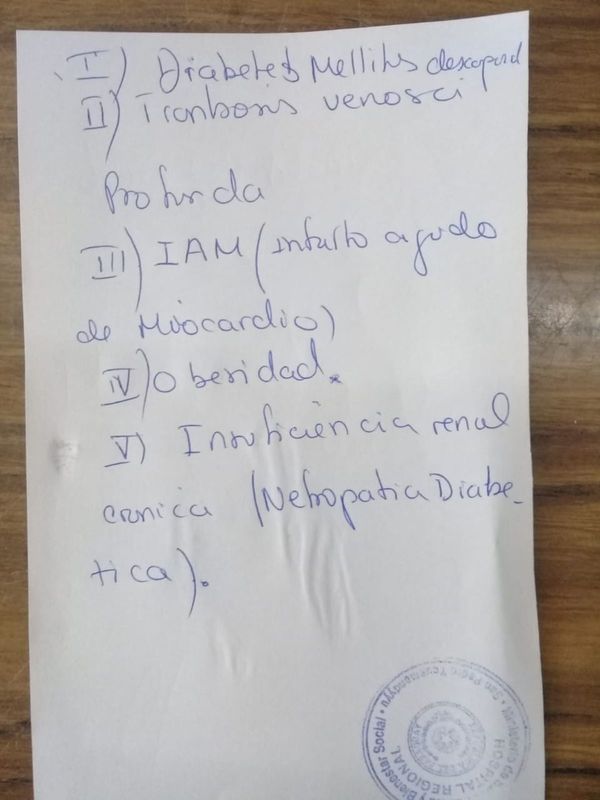 I) Diabetes Mellitus descopend
II) Trombosis venosa
Profunda
III) IAM (infarto agudo
de Miocardio)
IV) Obesidad.
V) Insuficiência renal
cronica (Nefropatia Diabe-
tica).
y Bienestar Social • San Pedro Ycuamandyyu • Ministerio de
HOSPITAL REGIONAL